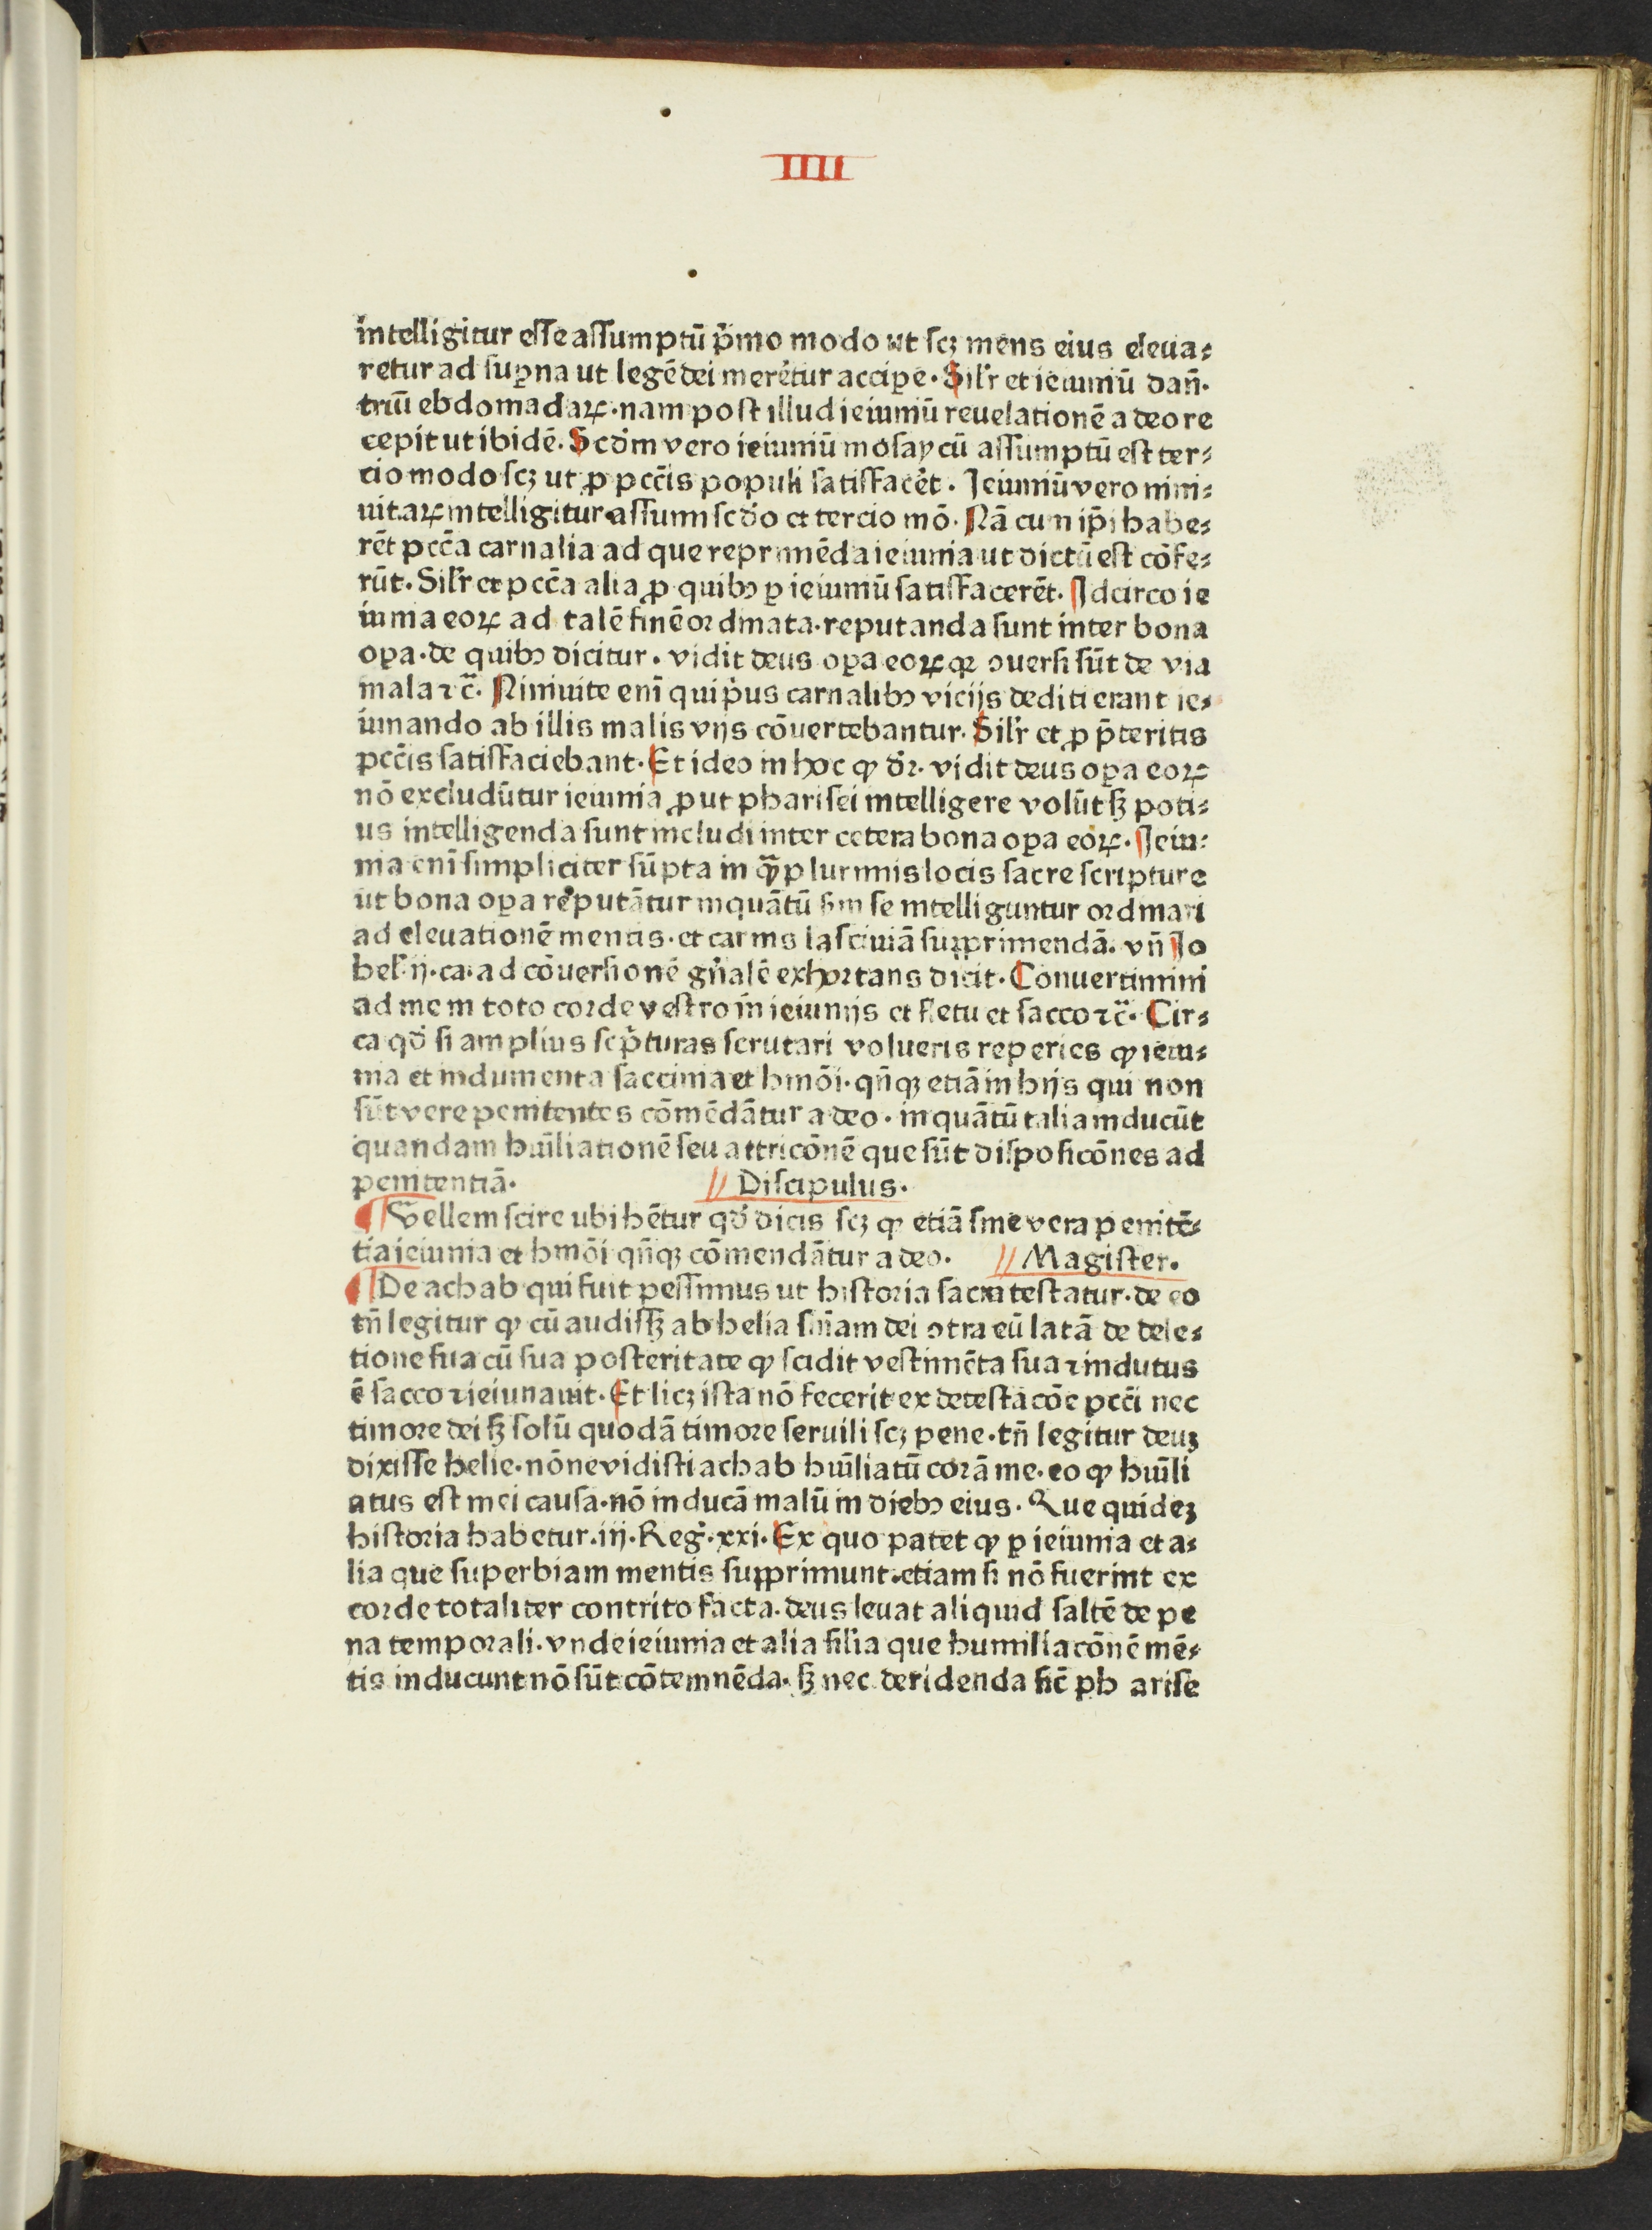 IIII
intelligitur esse assumptū p̓mo modo ut scꝫ mens eius eleua⸗
retur ad suꝑna ut legē dei merêtur acciꝑe. Silr̓ et ieiuniū dan̄.
triū ebdomadaꝝ. nam post illud ieiuniū reuelationē a deo re
cepit ut ibidē. Scdm̓ vero ieiuniū mosaycū assumptū est ter⸗
cio modo scꝫ ut ꝓ pcc̄is populi satisfac̓et. Jeiuniū vero nini⸗
uitaꝝ intelligitur assumi scd̓o et tercio mō. Nā cum ip̄i habe⸗
rēt pcc̄a carnalia ad que reprimēda ieiunia ut dictū est cōfe⸗
rūt. Silr̓ et pcc̄a alia ꝓ quibꝰ ꝑ ieiuniū satisfacerēt. Jdcirco ie
iunia eoꝝ ad talē finē ordinata. reputanda sunt inter bona
oꝑa. de quibꝰ dicitur. vidit deus oꝑa eoꝝ qꝛ ꝯuersi sūt de via
mala ⁊c̄. Niniuite enī qui p̓us carnalibꝰ vicijs dediti erant ie⸗
iunando ab illis malis vijs cōuertebantur. Silr̓ et ꝓ p̄teritis
pcc̄is satisfaciebant. Et ideo in hoc ꝙ d̓r. vidit deus oꝑa eoꝝ
nō excludūtur ieiunia ꝓut pharisei intelligere volūt sꝫ poti⸗
us intelligenda sunt includi inter cetera bona oꝑa eoꝝ. Jeiu⸗
nia enī simpliciter sūpta in ꝙ̄plurimis locis sacre scripture
ut bona oꝑa reputātur inquātū sm̄ se intelliguntur ordinari
ad eleuationē mentis. et carnis lasciuiā supprimendā. vn̄ Jo
hel̓. ij. ca. ad cōuersionē gn̓alē exhortans dicit. Conuertimini
ad me in toto corde vestro in ieiunijs et fletu et sacco ⁊c̄. Cir⸗
ca qd̓ si amplius scp̓turas scrutari volueris reperies ꝙ ieiu⸗
nia et indumenta saccina et hmōi. qn̄qꝫ etiā in hijs qui non
sūt vere penitentes cōmēdātur a deo. inquātū talia inducūt
quandam hūiliationē seu attricōnē que sūt disposicōnes ad
penitentiā. // Discipulus.
¶ Vellem scire ubi hētur qd̓ dicis scꝫ ꝙ etiā sine vera penitē⸗
tia ieiunia et hmōi qn̄qꝫ cōmendātur a deo. // Magister.
¶ De achab qui fuit pessimus ut historia sacra testatur. de eo
tn̄ legitur ꝙ cū audissꝫ ab helia sn̄iam dei ꝯtra eū latā de dele⸗
tione sua cū sua posteritate ꝙ scidit vestimēta sua ⁊ indutus
ē sacco ⁊ ieiunauit. Et licꝫ ista nō fecerit ex detestacōe pcc̄i nec
timore dei sꝫ solū quodā timore seruili scꝫ pene. tn̄ legitur deuꝫ
dixisse helie. nōne vidisti achab hūiliatū corā me. eo ꝙ hūili
atus est mei causa. nō inducā malū in diebꝰ eius. Que quideꝫ
historia habetur. iij. Reg̓. xxi. Ex quo patet ꝙ ꝑ ieiunia et a⸗
lia que superbiam mentis supprimunt. etiam si nō fuerint ex
corde totaliter contrito facta. deus leuat aliquid saltē de pe
na temporali. vnde ieiunia et alia silia que humiliacōnē mē⸗
tis inducunt nō sūt cōtemnēda. sꝫ nec deridenda sic̄ ph arise